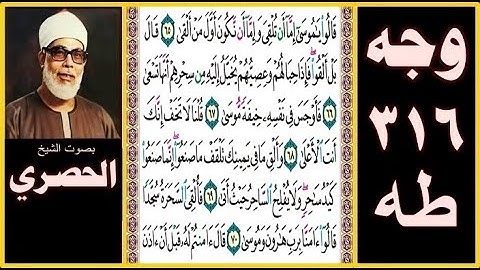 قَالُوا يَٰمُوسَىٰٓ إِمَّآ أَن تُلْقِىَ وَإِمَّآ أَن نَّكُونَ أَوَّلَ مَنْ أَلْقَىٰ ٦٥ قَالَ
بَلْ أَلْقُوا فَإِذَا حِبَالُهُمْ وَعِصِيُّهُمْ يُخَيَّلُ إِلَيْهِ مِن سِحْرِهِمْ أَنَّهَا تَسْعَىٰ
٦٦ فَأَوْجَسَ فِى نَفْسِهِۦ خِيفَةً مُّوسَىٰ ٦٧ قُلْنَا لَا تَخَفْ إِنَّكَ
أَنتَ ٱلْأَعْلَىٰ ٦٨ وَأَلْقِ مَا فِى يَمِينِكَ تَلْقَفْ مَا صَنَعُوٓا إِنَّمَا صَنَعُوا
كَيْدُ سَٰحِرٍ وَلَا يُفْلِحُ ٱلسَّاحِرُ حَيْثُ أَتَىٰ ٦٩ فَأُلْقِىَ ٱلسَّحَرَةُ سُجَّدًا
قَالُوٓا ءَامَنَّا بِرَبِّ هَٰرُونَ وَمُوسَىٰ ٧٠ قَالَ ءَامَنتُمْ لَهُۥ قَبْلَ أَنْ ءَاذَنَ
وجه
٣١٦
طه
بصوت الشيخ
الحصري